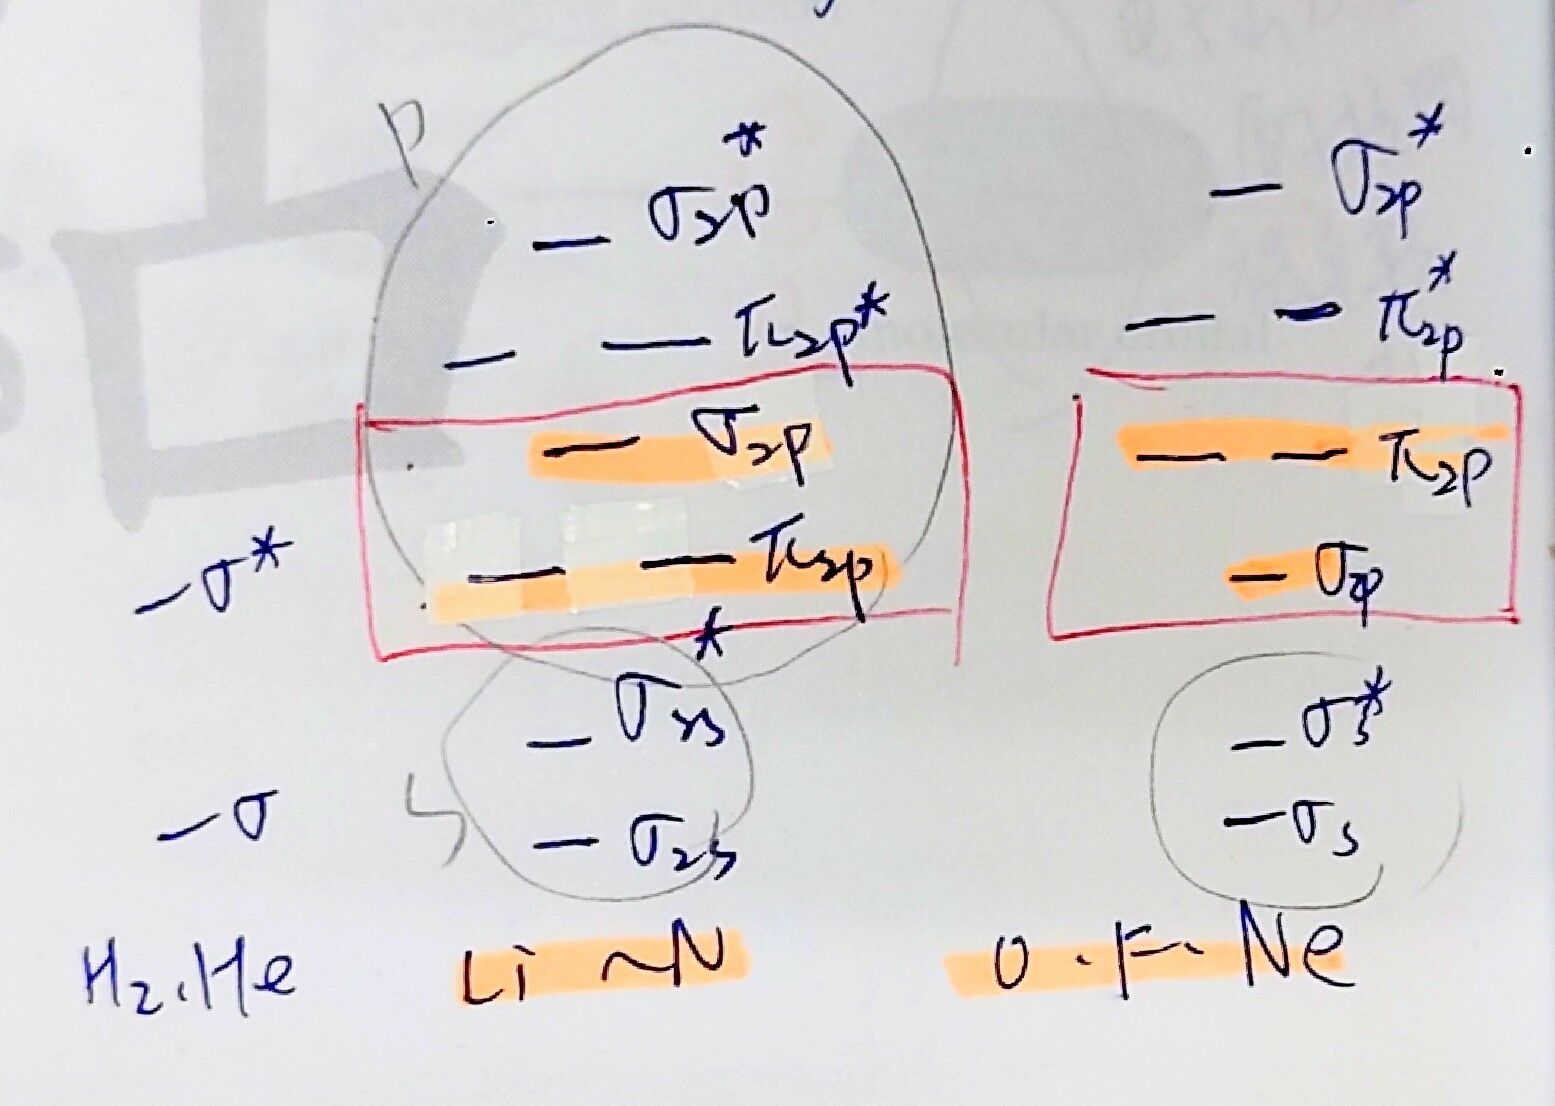 P
— σ2p*
— — π2p*
— σ2p
— — π2p
S
— σ2s*
— σ2s
— σ2p*
— — π2p*
— — π2p
— σ2p
— σs*
— σs
— σ*
— σ
H2.He
Li ~N
O . F . Ne